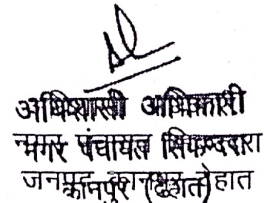 अधिशासी अधिकारी
नगर पंचायत सिकन्दरा
जनपद कानपुर देहात
कानपुर (देहात)